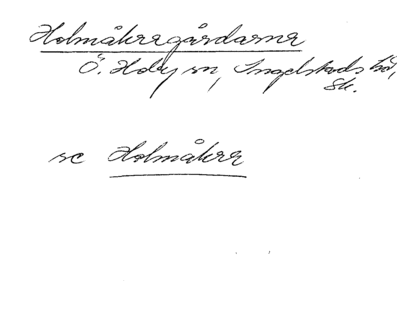 Holmåkregårdarne
Ö. Hoby sn, Ingelstads hd,
Sk.
se Holmåkre